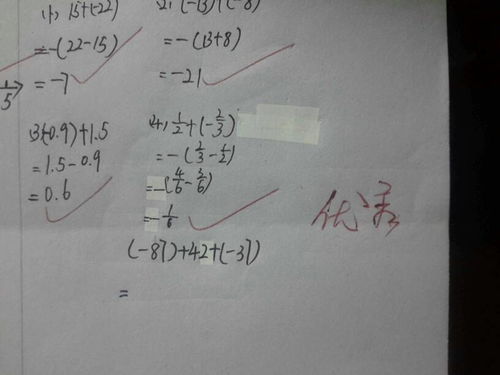 (1) 15+(-22)
=-(22-15)
=-7
(2) (-13)+(-8)
=-(13+8)
=-21
1/5
(3)(-0.9)+1.5
=1.5-0.9
=0.6
(4) 1/2+(-2/3)
=-(2/3-1/2)
=-(4/6-3/6)
=-1/6
(-87)+42+(-37)
=
优秀